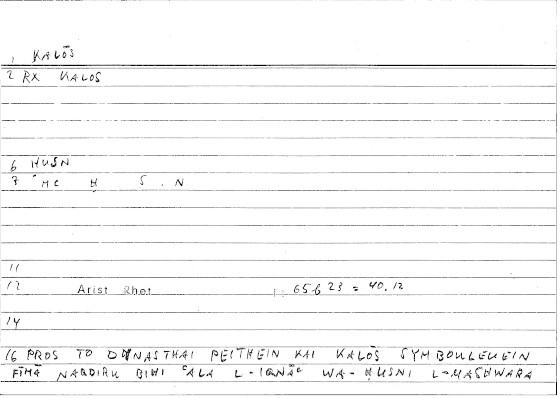 1 KALŌS
2 RX KALOS
6 HUSN
7 MC Ḥ S . N
11
12 Arist Rhet 1: 65b23 = 40.12
14
16 PROS TO DUNASTHAI PEITHEIN KAI KALŌS SYMBOULEUEIN
FĪMĀ NAQDIRU BIHI ʿALA L-IQNĀʿ WA-ḤUSNI L-MASHWARA